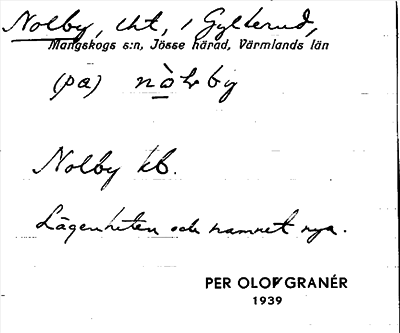 Nolby, lht, i Gylterud,
Mangskogs s:n, Jösse härad, Värmlands län
(pa)
Nolby kb.
Lägenheten och namnet nya.
PER OLOF GRANÉR
1939